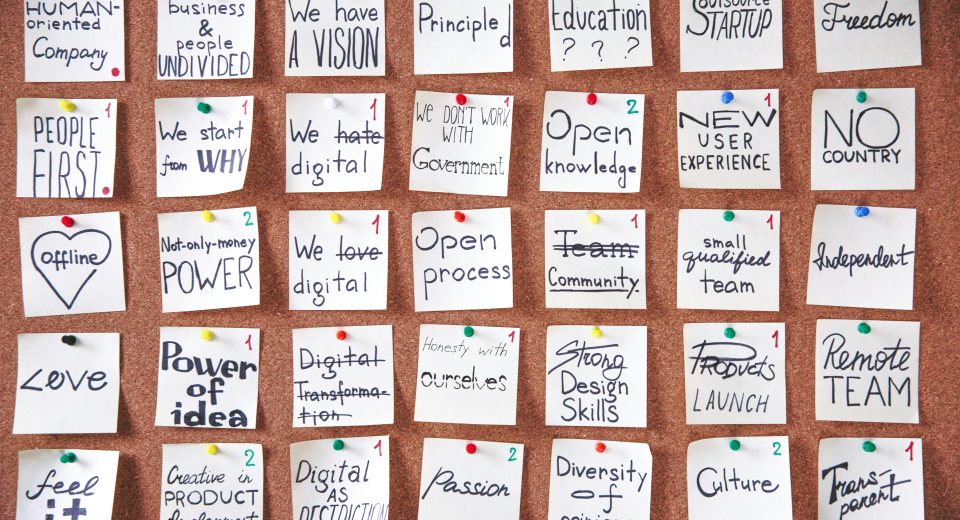 HUMAN-
oriented
Company
business
&
people
UNDIVIDED
We have
A VISION
Principled
Education
? ? ?
OUTSOURCE
STARTUP
Freedom
PEOPLE
FIRST
1
We start
from WHY
1
We hate
digital
1
We DON'T WORK
WITH
Government
2
Open
knowledge
1
NEW
USER
EXPERIENCE
NO
COUNTRY
offline
2
Not-only-money
POWER
1
We love
digital
Open
process
1
Team
Community
1
small
qualified
team
Independent
Love
1
Power
of
idea
1
Digital
Transforma-
tion
1
Honesty with
ourselves
Strong
Design
Skills
1
Products
LAUNCH
Remote
TEAM
feel
it
2
Creative in
PRODUCT
development
1
Digital
AS
RESTRICTION
2
Passion
Diversity
of
2
Culture
1
Trans-
parent